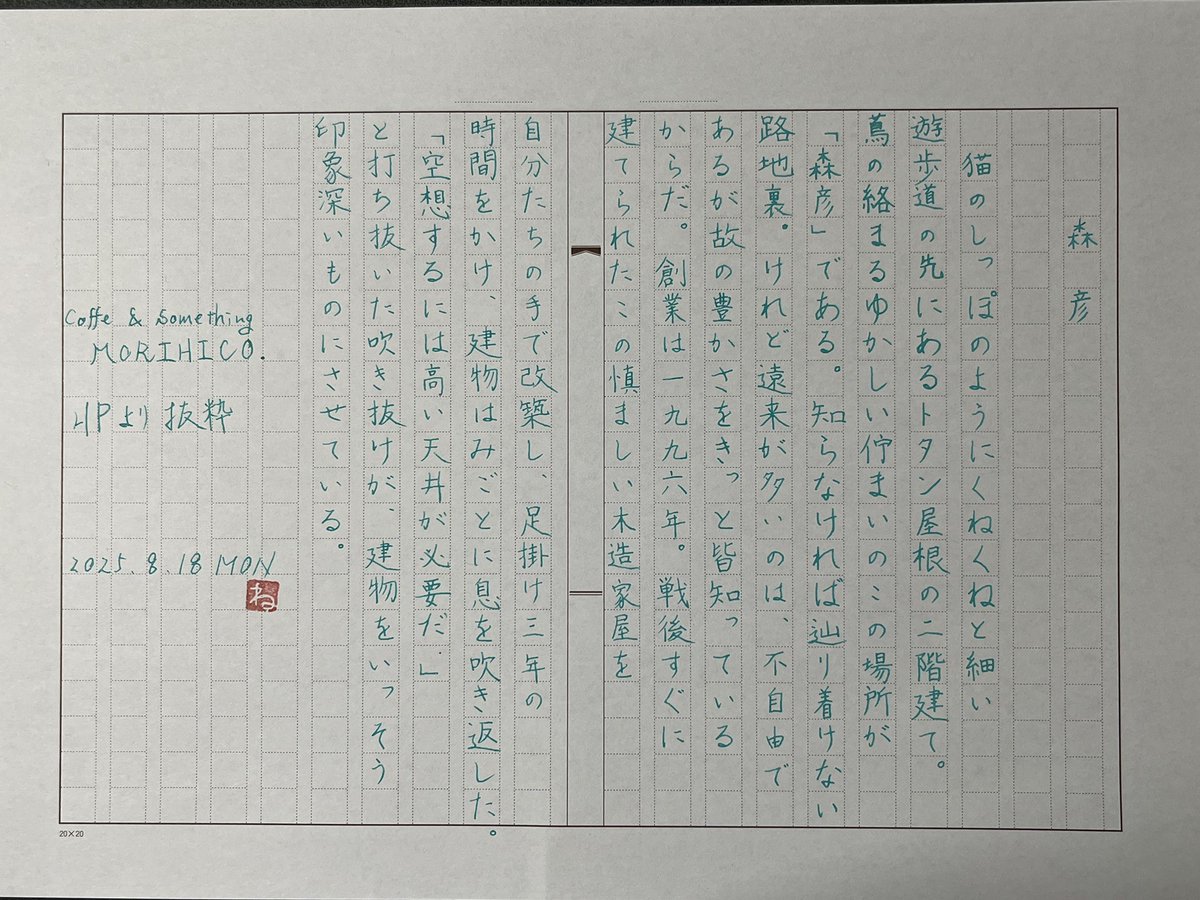 森彦
猫のしっぽのようにくねくねと細い
遊歩道の先にあるトタン屋根の二階建て。
蔦の絡まるゆかしい佇まいのこの場所が
「森彦」である。知らなければ辿り着けない
路地裏。けれど遠来が多いのは、不自由で
あるが故の豊かさをきっと皆知っている
からだ。創業は一九九六年。戦後すぐに
建てられたこの慎ましい木造家屋を
自分たちの手で改築し、足掛け三年の
時間をかけ、建物はみごとに息を吹き返した。
「空想するには高い天井が必要だ。」
と打ち抜いた吹き抜けが、建物をいっそう
印象深いものにさせている。
Coffe & Something
MORIHICO.
HPより抜粋
2025.8.18 MON
ね
20×20